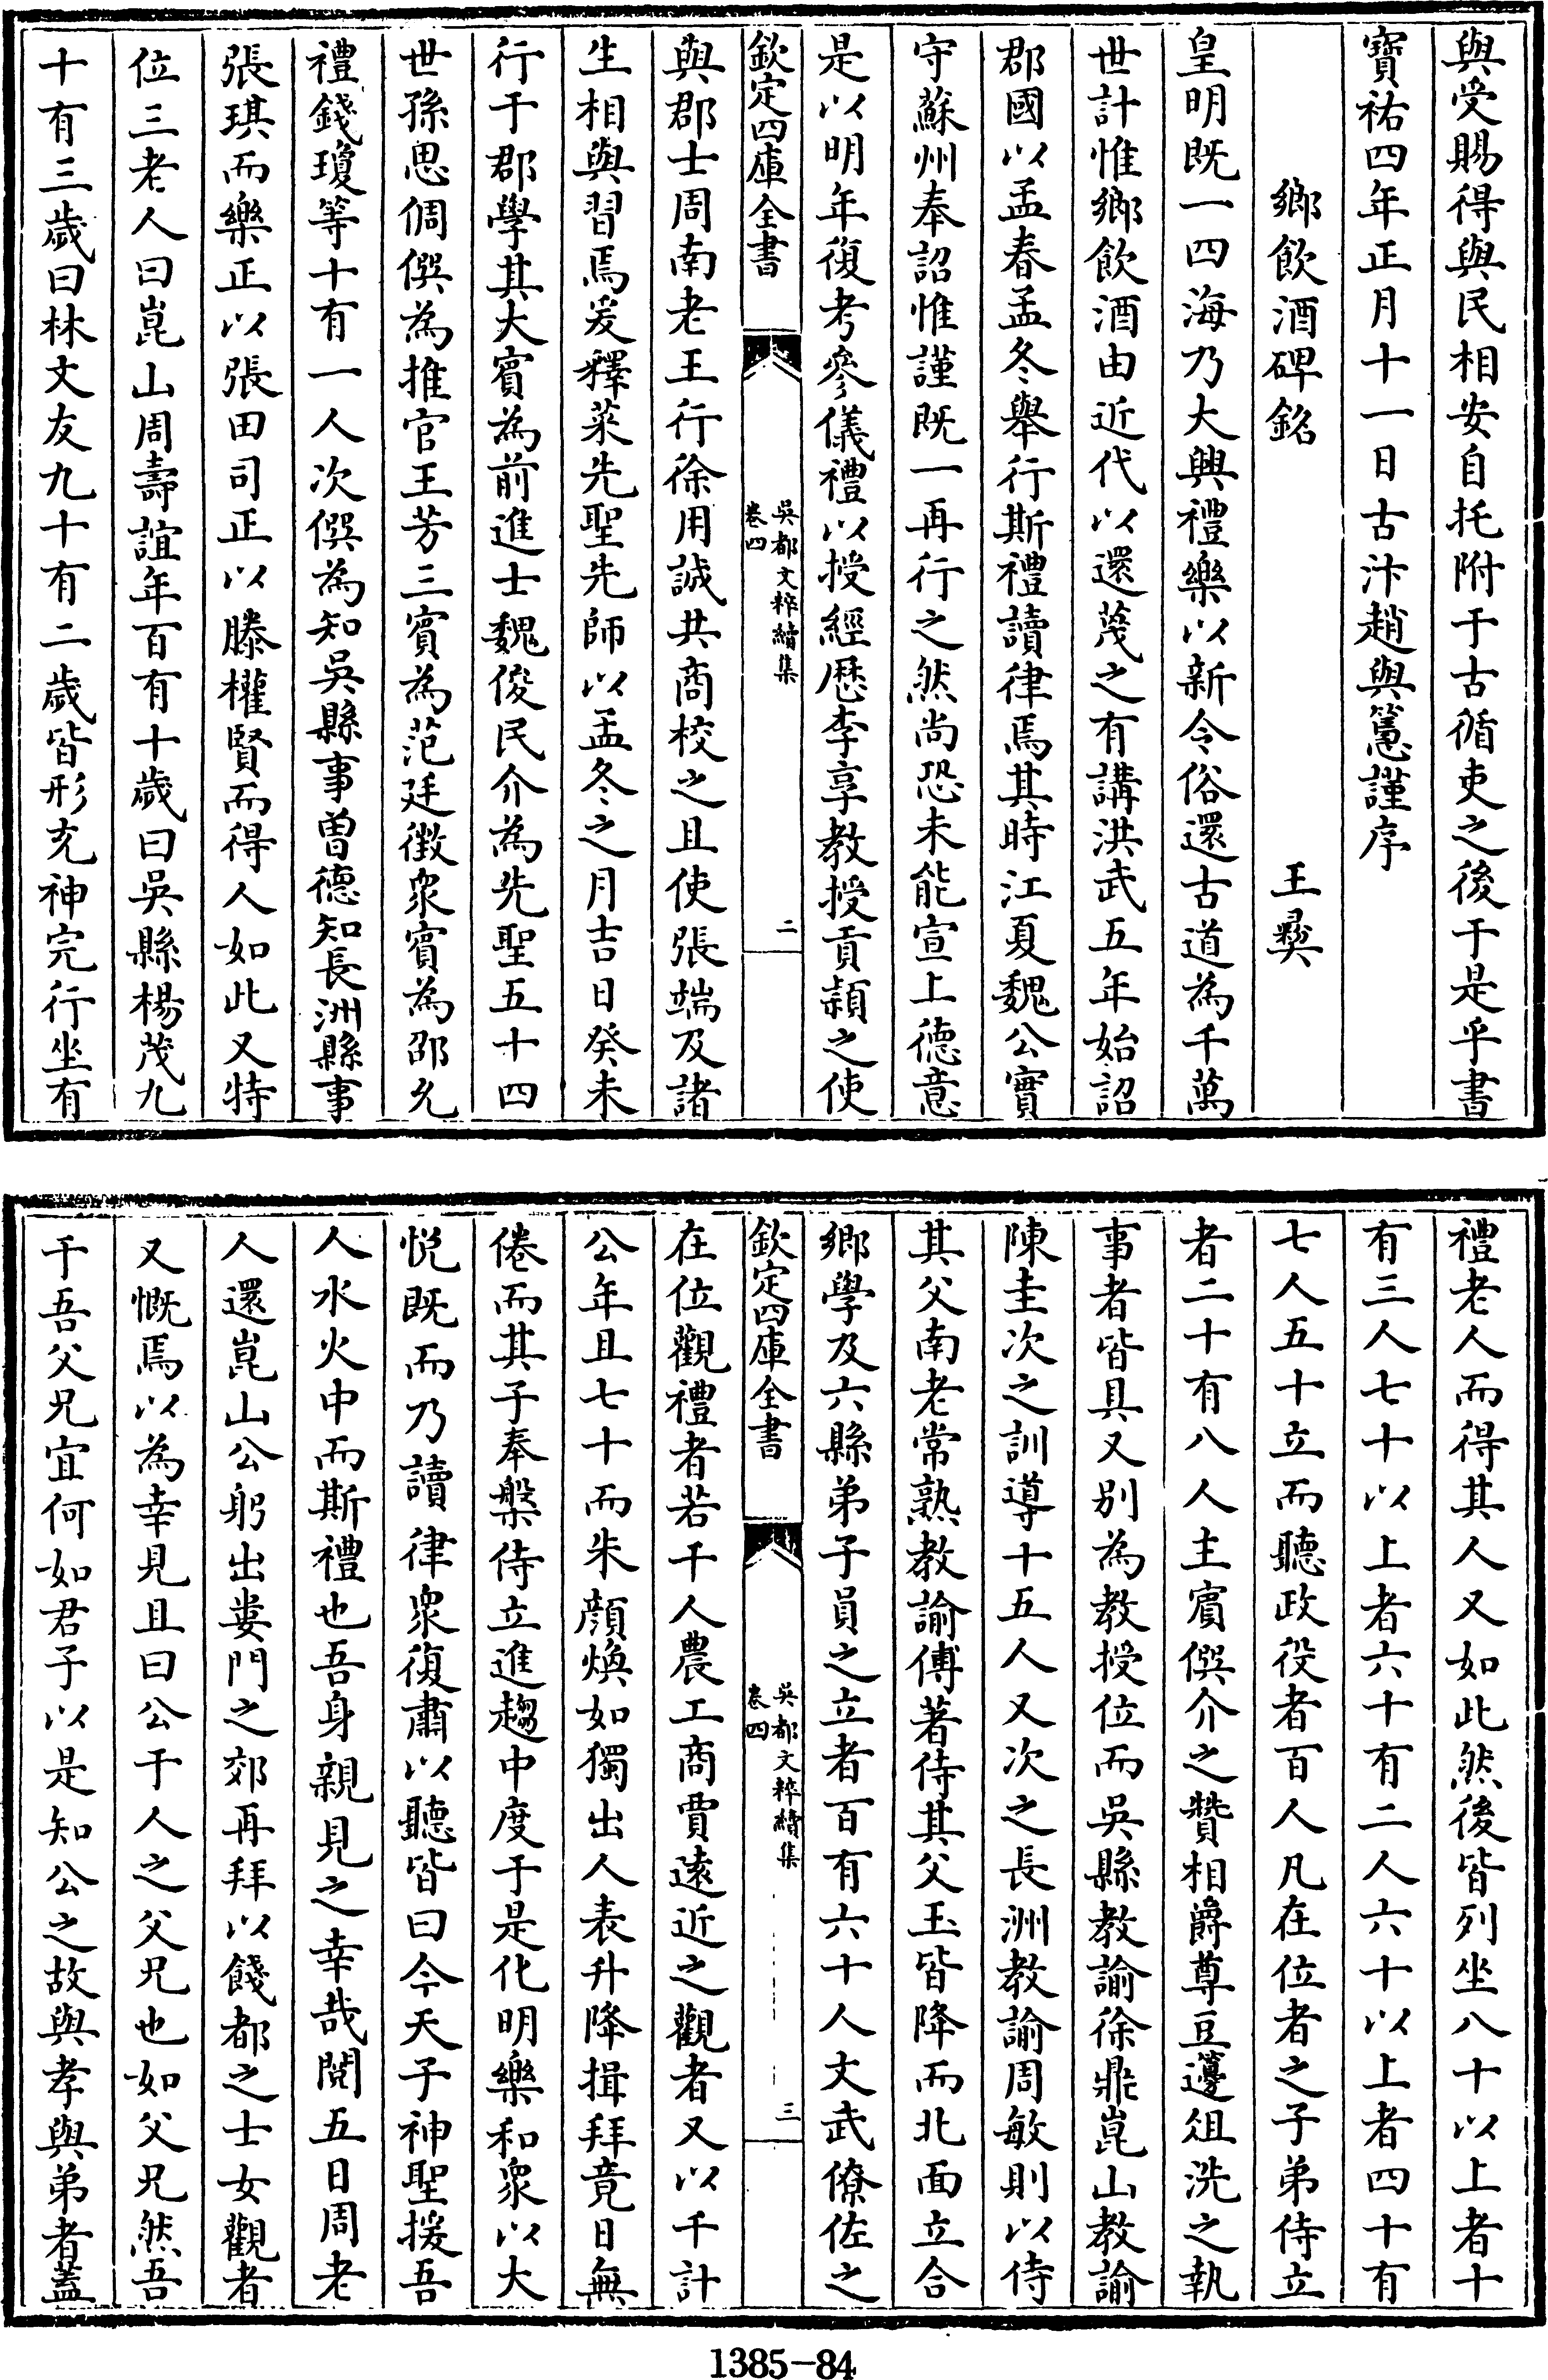 與受賜得與民相安自托附于古循吏之後于是乎書
寳祐四年正月十一日古汴趙與𥲅謹序
鄉飲酒碑銘　王彝
皇明既一四海乃大興禮樂以新令俗還古道為千萬
世計惟鄉飲酒由近代以還蔑之有講洪武五年始詔
郡國以孟春孟冬舉行斯禮讀律焉其時江夏魏公實
守蘇州奉詔惟謹既一再行之然尚恐未能宣上德意
是以明年復考參儀禮以授經歷李亨教授貢潁之使
欽定四庫全書
吳都文粹續集
卷四
二
與郡士周南老王行徐用誠共商校之且使張端及諸
生相與習焉爰釋菜先聖先師以孟冬之月吉日癸未
行于郡學其大賓為前進士魏俊民介為先聖五十四
世孫思倜僎為推官王芳三賓為范廷徵衆賓為邵允
禮錢瓊等十有一人次僎為知吳縣事曾德知長洲縣事
張琪而樂正以張田司正以滕權賢而得人如此又特
位三老人曰崑山周壽誼年百有十歲曰吳縣楊茂九
十有三歲曰林文友九十有二歲皆形充神完行坐有
禮老人而得其人又如此然後皆列坐八十以上者十
有三人七十以上者六十有二人六十以上者四十有
七人五十立而聽政役者百人凡在位者之子弟侍立
者二十有八人主賓僎介之贊相爵尊豆籩俎洗之執
事者皆具又別為教授位而吳縣教諭徐鼎崑山教諭
陳圭次之訓導十五人又次之長洲教諭周敏則以侍
其父南老常熟教諭傅著侍其父玉皆降而北面立合
鄉學及六縣弟子員之立者百有六十人文武僚佐之
欽定四庫全書
吳都文粹續集
卷四
三
在位觀禮者若干人農工商賈遠近之觀者又以千計
公年且七十而朱顔煥如獨出人表升降揖拜竟日無
倦而其子奉槃侍立進趨中度于是化明樂和衆以大
悅既而乃讀律衆復肅以聽皆曰今天子神聖援吾
人水火中而斯禮也吾身親見之幸哉閱五日周老
人還崑山公躬出婁門之郊再拜以餞都之士女觀者
又慨焉以為幸見且曰公于人之父兄也如父兄然吾
于吾父兄宜何如君子以是知公之故與孝與弟者蓋
1385-84